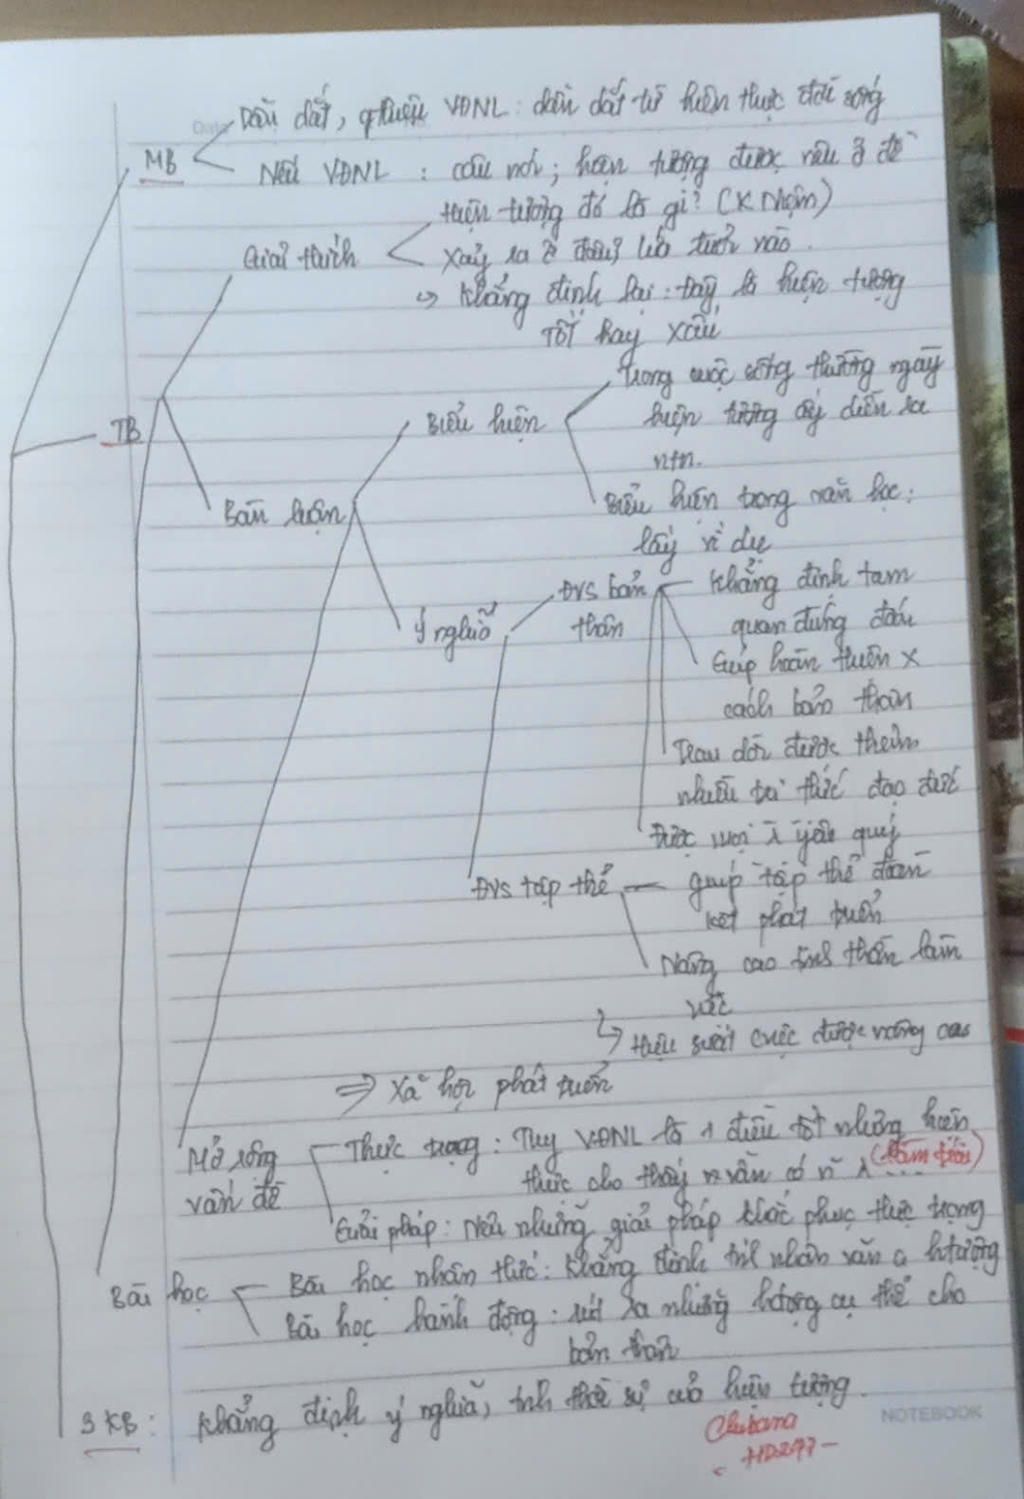 Dẫn dắt, gthiệu VĐNL: dẫn dắt từ hiện thực đời sống
MB
Nêu VĐNL : câu nói; hiện tượng được nêu ở đề
Giải thích
hiện tượng đó là gì? (K Niệm)
Xảy ra ở đâu, lứa tuổi nào.
↪ Khẳng định lại: đây là hiện tượng
TỐT hay xấu
TB
Biểu hiện
Trong cuộc sống thường ngày
hiện tượng ấy diễn ra
ntn.
Bàn luận
Biểu hiện trong văn học:
lấy ví dụ
Ý nghĩa
ĐVS bản
thân
Khẳng định tam
quan đứng đắn
Giúp hoàn thiện
cách bản thân
Trau dồi được thêm
nhiều tri thức đạo đức
Được mọi yêu quý
ĐVS tập thể
giúp tập thể đoàn
kết phát triển
Nâng cao tinh thần làm
việc
↳ Hiệu suất cviệc được nâng cao
⇒ Xã hội phát triển
Mở rộng
vấn đề
Thực trạng: Tuy VĐNL là 1 điều tốt nhưng hiện
thực cho thấy vẫn có ...
Giải pháp: Nêu những giải pháp khắc phục thực trạng
Bài học
Bài học nhận thức: Khẳng định nhân văn htượng
Bài học hành động: rút ra những hđộng cụ thể cho
bản thân
3 KB: Khẳng định ý nghĩa, tính thời sự của hiện tượng.
NOTEBOOK